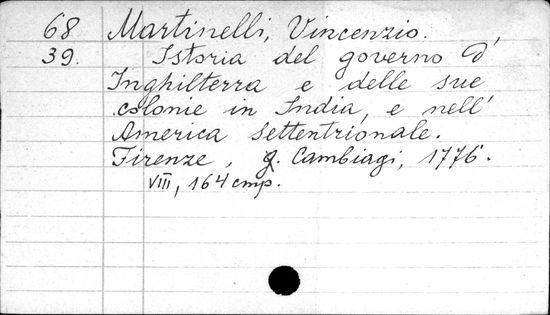 68 Martinelli, Vincenzio.
39. Istoria del governo d'
Inghilterra e delle sue
colonie in India, e nell'
America Settentrionale.
Firenze, G. Cambiagi, 1776.
VIII, 164 cmp.